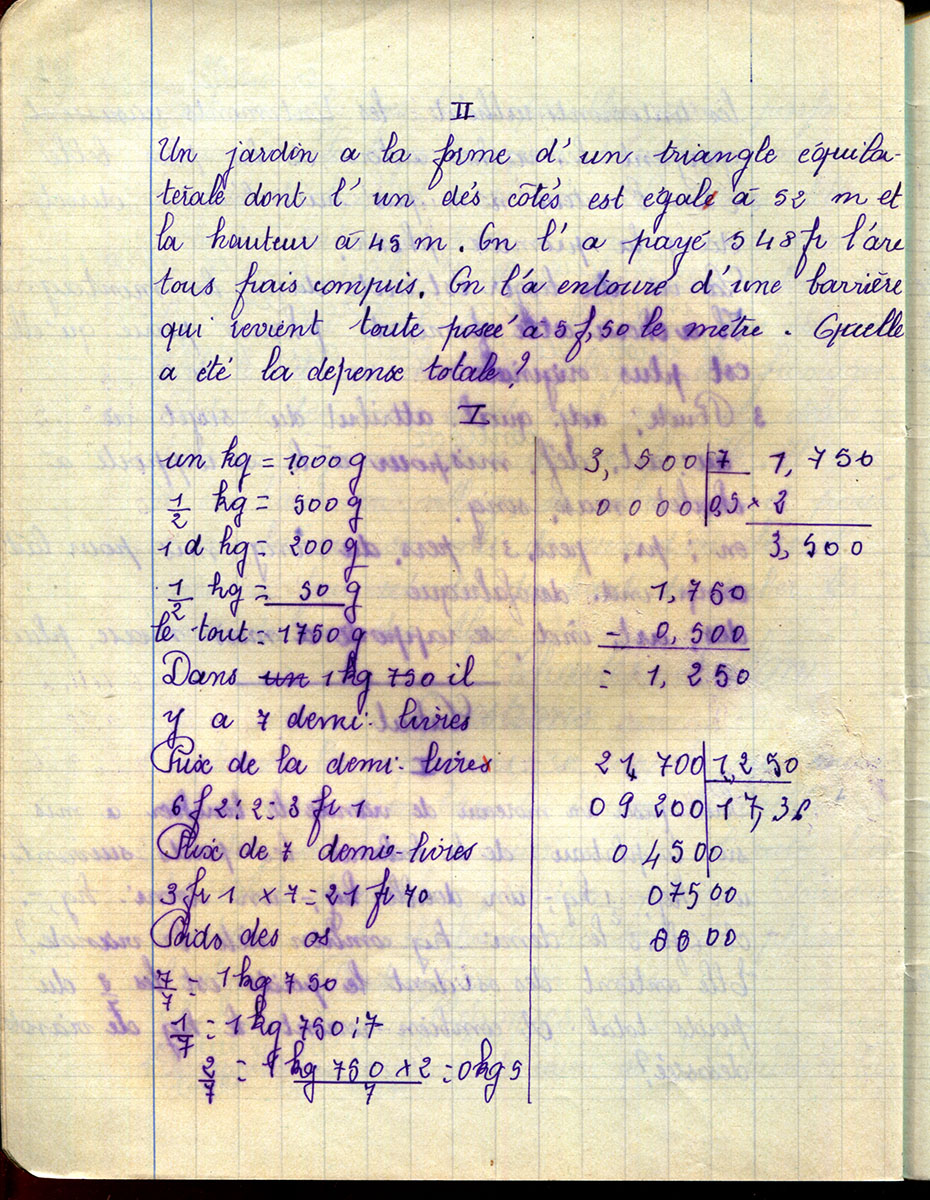 II
Un jardin a la forme d'un triangle équila-
térale dont l'un dés côtés est égale à 52 m et
la hauteur à 45 m. On l'a payé 548 fr l'are
tous frais compuis. On l'a entouré d'une barrière
qui revient toute poseé à 5 f,50 le métre. Quelle
a été la dépense totale?
I
un kg = 1000 g
1/2 kg = 500 g
1 d hg = 200 g
1/2 hg = 50 g
le tout = 1750 g
Dans un 1 kg 750 il
y a 7 demi-livres
Prix de la demi-livres
6 f 2 : 2 = 3 fr 1
Prix de 7 demie-livres
3 fr 1 × 7 = 21 fr 70
Poids des os
7/7 = 1 kg 750
1/7 = 1 kg 750 : 7
2/7 = 1 kg 750 × 2 / 7 = 0 kg 5
3,500 7 1,750
0000 0,5 × 2
3,500
1,750
- 0,500
= 1,250
21,700 1,250
09 200 17,36
0 4500
07500
0000